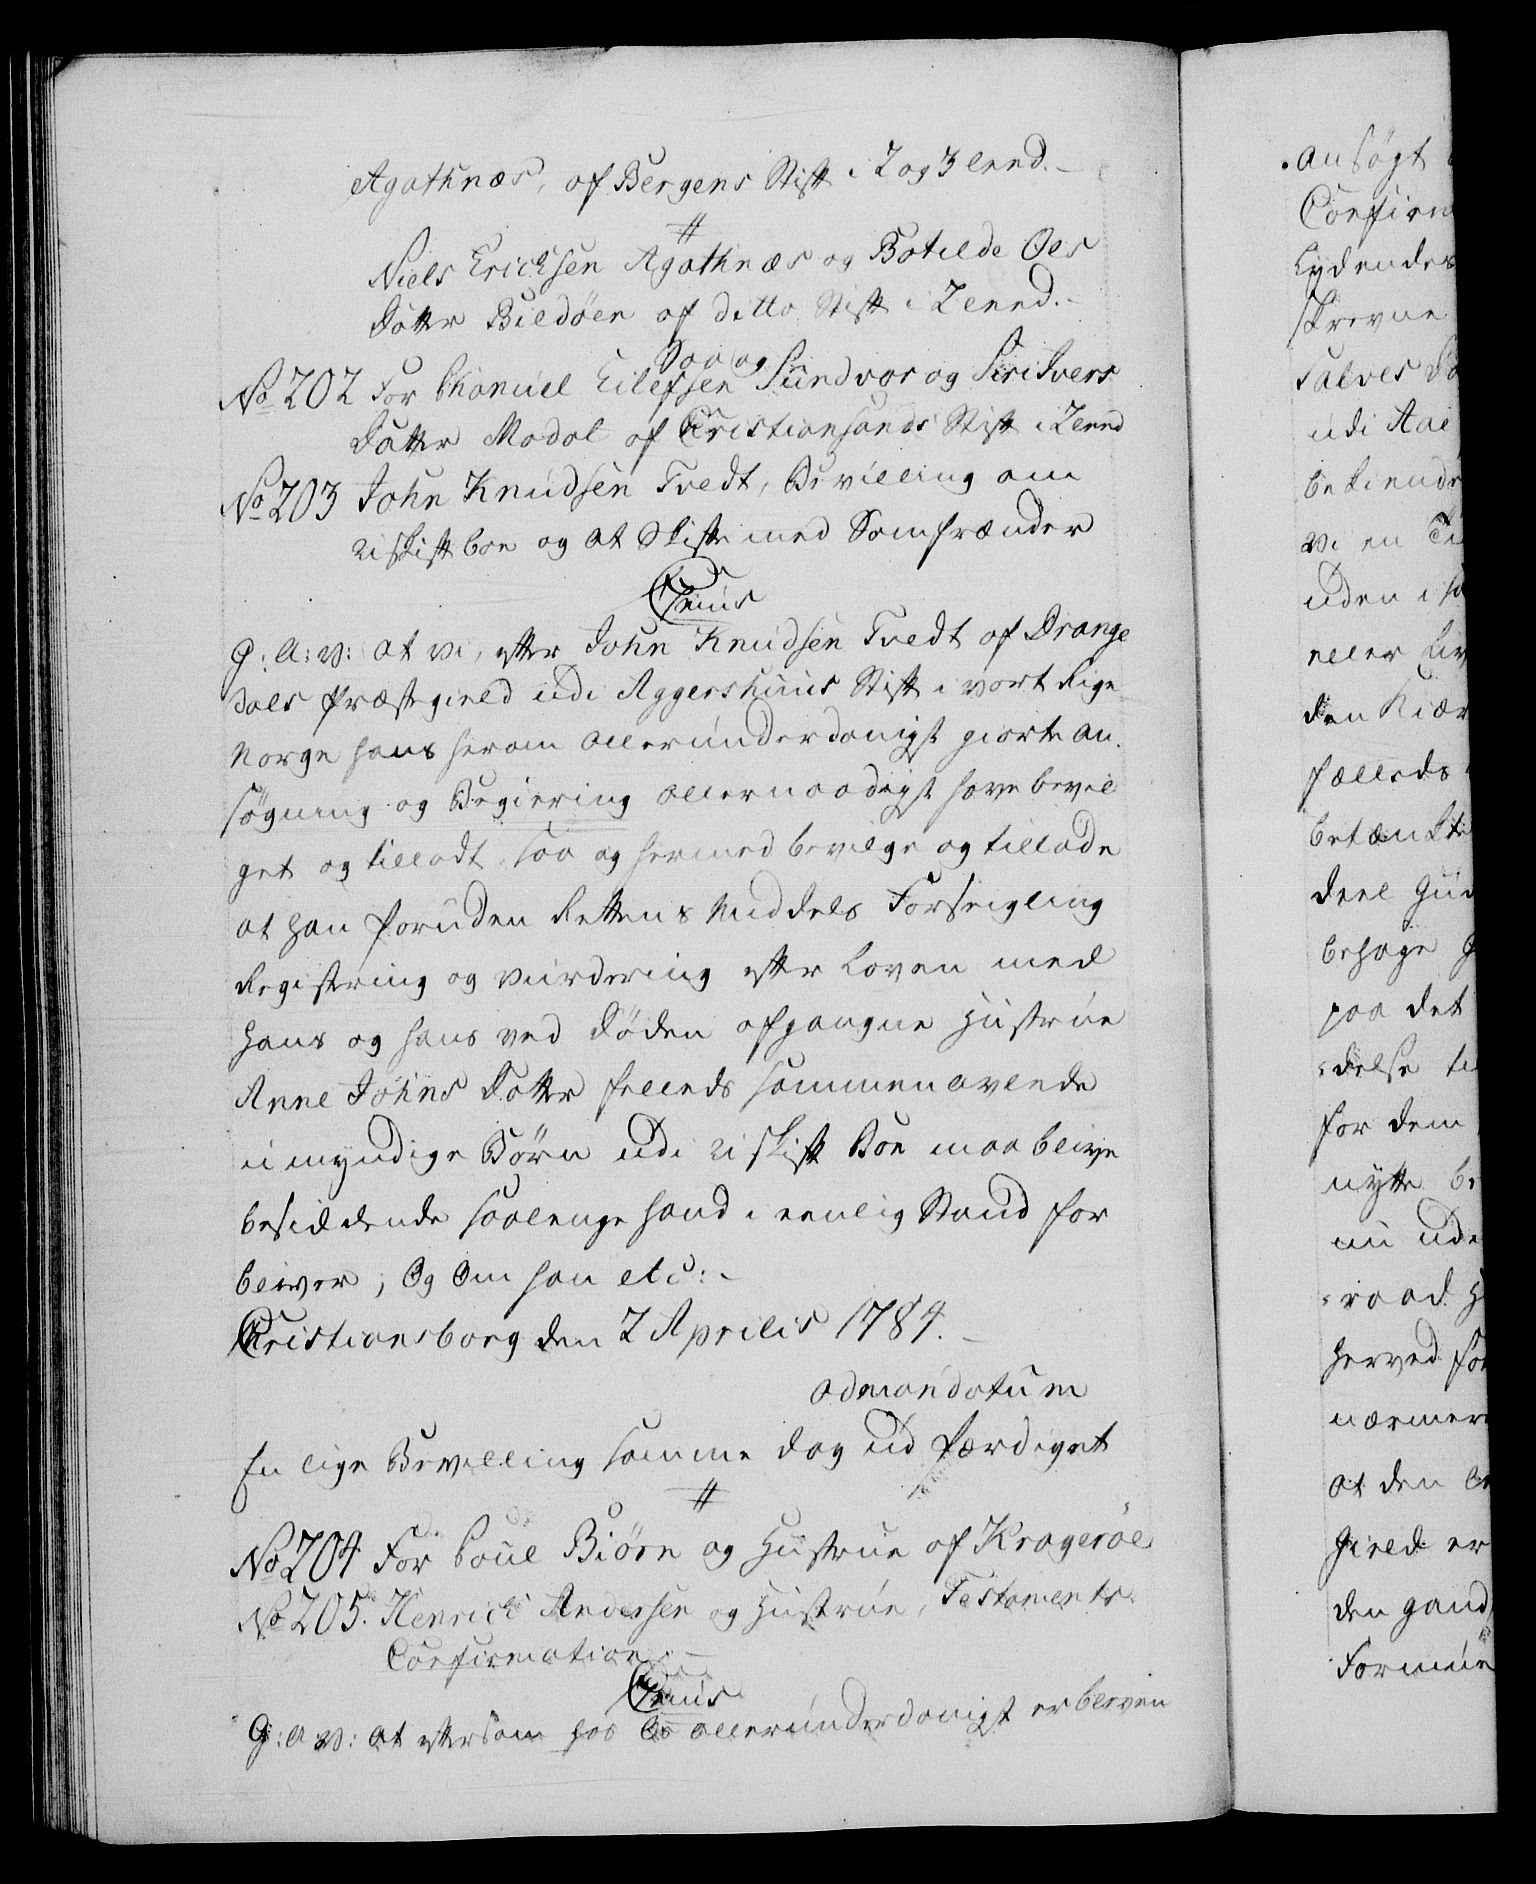 Agathnæs, af Bergens Stift i 2 og 3 Leed. -
#
Niels Ericksen Agathnæs og Botilde Ols
Datter Bildöen af ditto Stift i 2 Leed. -
Saa og
No 202 For Manuel Eilefsen Sundvor og Siri Ivers
Datter Modal af Christiansands Stift i 2 Leed
No 203 John Knudsen Tvedt, Bevilling om
uskift boe og at Skifte med Samfrænder
C 7mus
G: A: V: at vi, efter John Knudsen Tvedt af Drange
dals Præstegield udi Aggershuus Stift i vort Rige
Norge hans herom allerunderdanigst giorte an
søgning og Begiering allernaadigst have bevil
get og tilladt, saa og hermed bevilge og tillade
at han foruden Rettens Middels Forseigling
Registering og vurdering efter Loven med
hans og hans ved Døden afgangne Hustrue
Anne Johns Datter felleds sammenavlede
umyndige Børn udi uskift Boe maa blive
besiddende saalenge hand i eenlig Stand for
bliver; Og Om han etc: -
Christiansborg den 2 Aprilis 1784. -
admandatum
En lige Bevilling samme dag ud færdiget
#
No 204 For Poul Biörn og Hustrue af Kragerøe
No 205. Henrich Andersen og Hustrue, Testaments
Confirmation. -
C 7mus
G: A V: at eftersom hos Os allerunderdanigst er bleven
ansøgt
Confirm
Lydendes
skrevne
Salves Da
udi Aae
bekiendt
vi en Te
uden i
eller Liv
den Kiær
fælleds
betænkt
deel Gud
behage
paa det
delse ti
for dem
nytte be
nu ude
raad H
herved for
nærmer
at den
Gield er
den gand
Formue